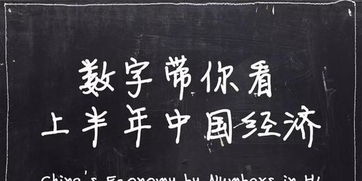 数字带你看
上半年中国经济
China's Economy by Numbers in H1